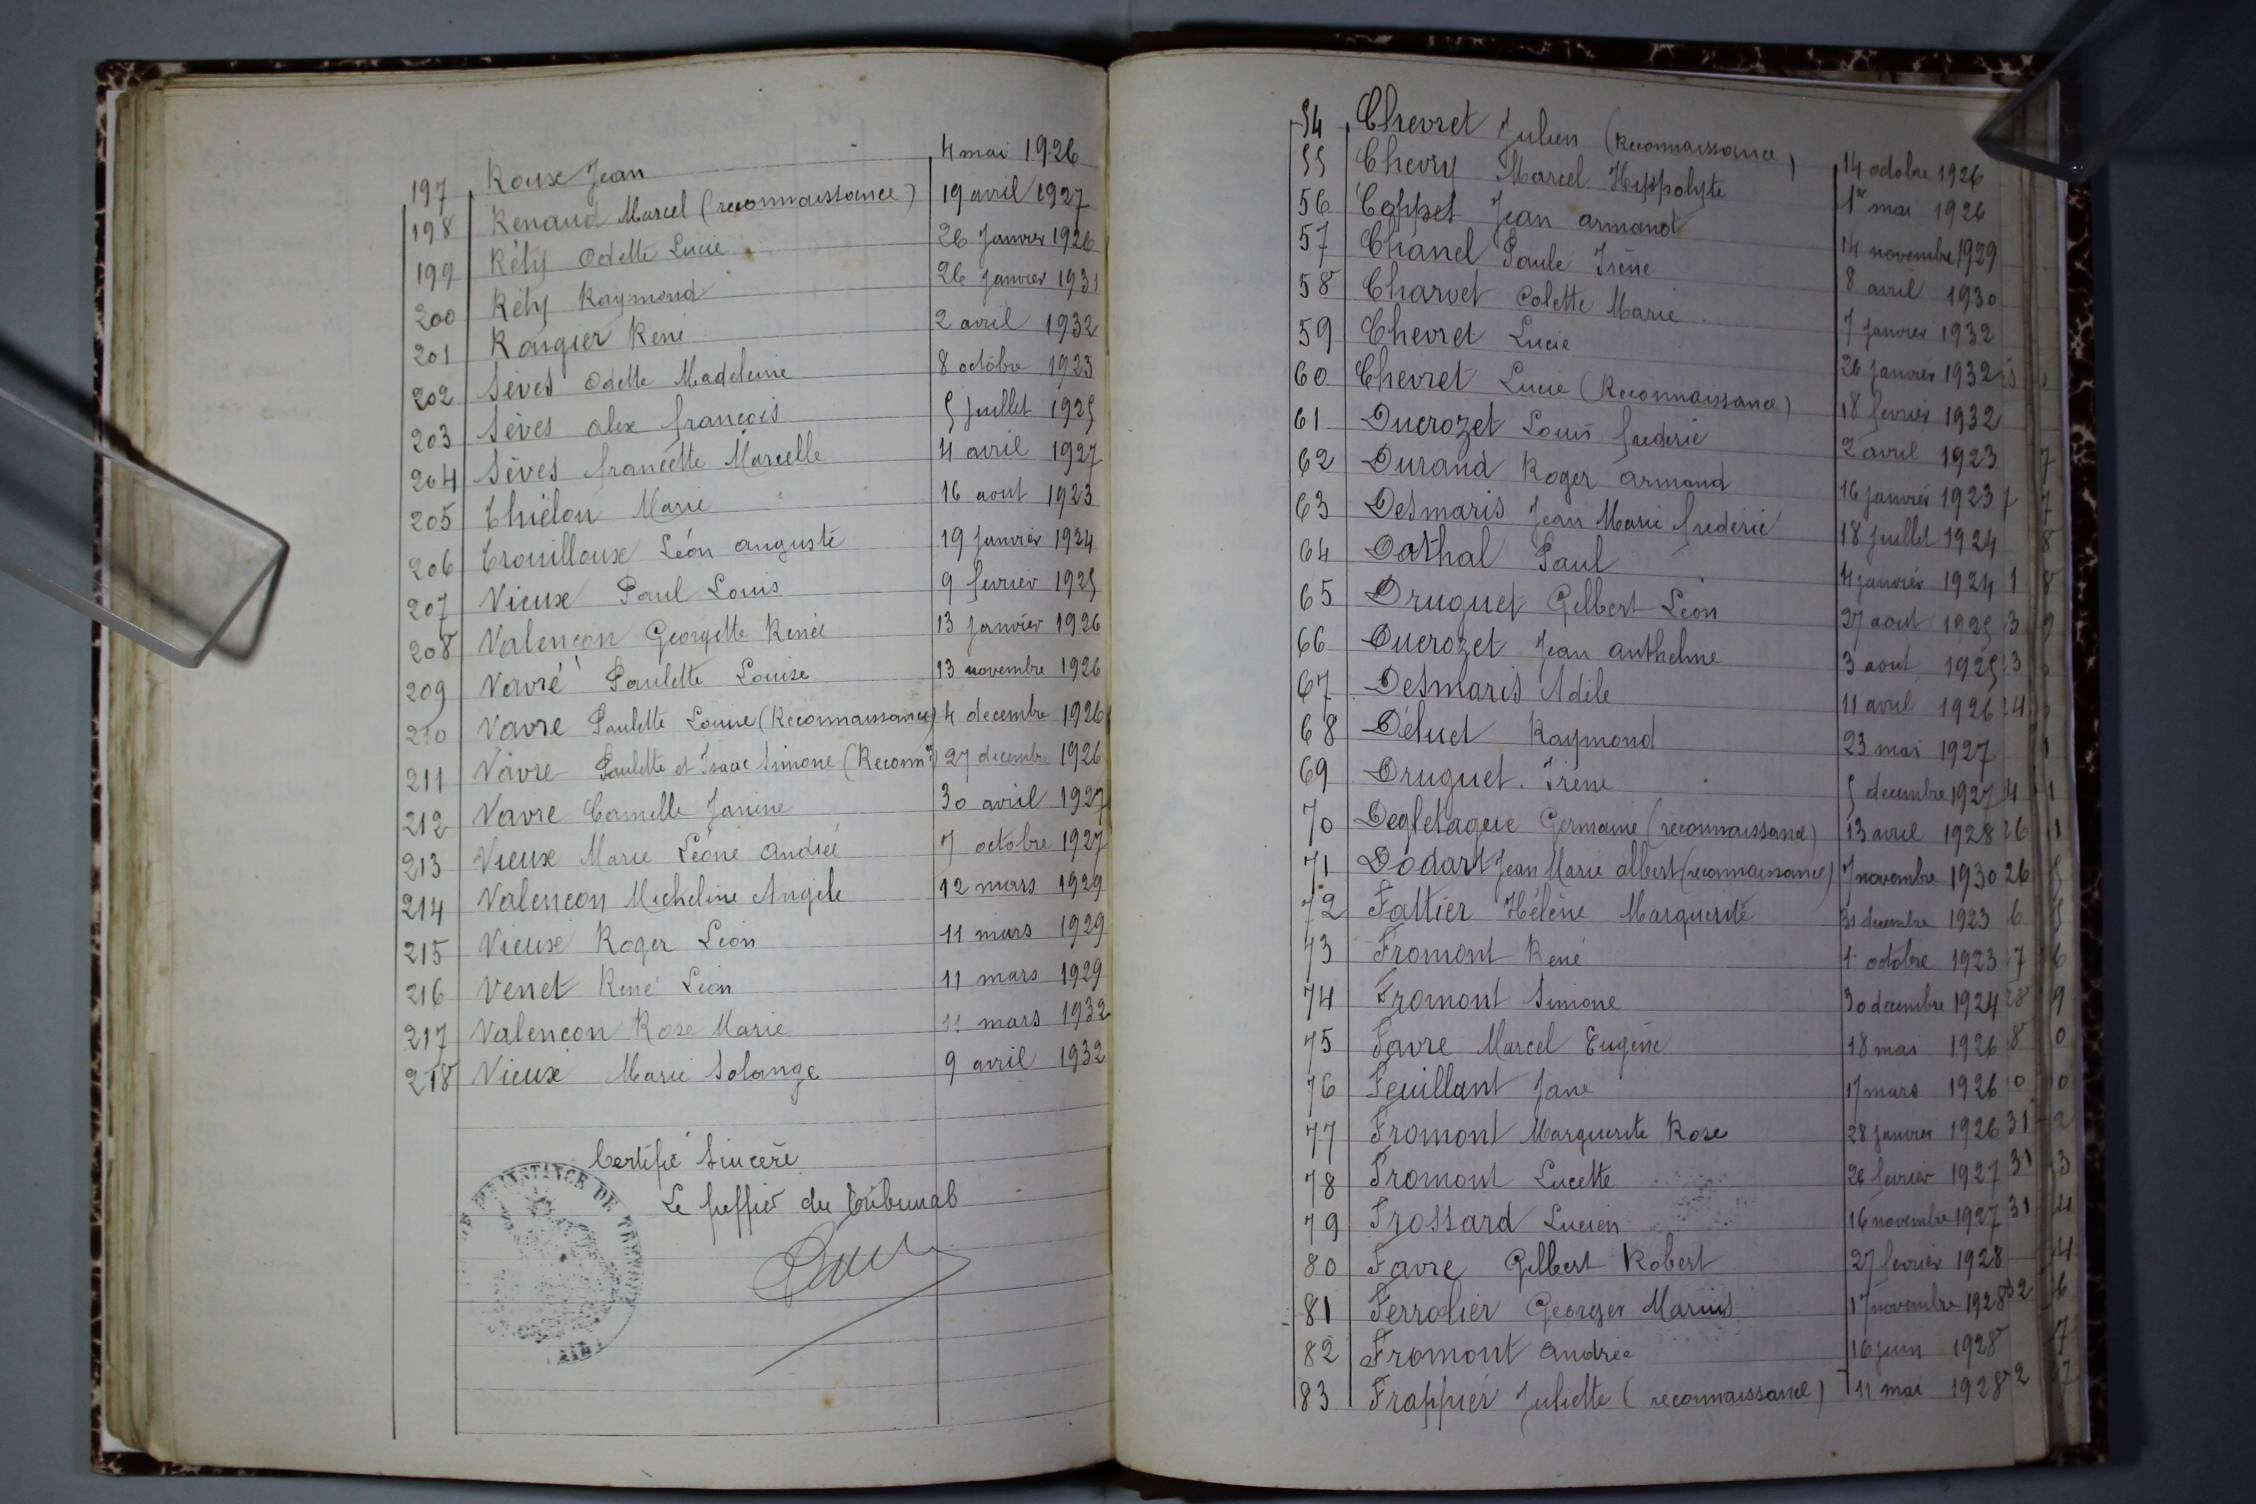 197 Roux Jean 4 mai 1926
198 Renaud Marcel (reconnaissance) 19 avril 1927
199 Réty Odette Lucie 26 Janvier 1926
200 Réty Raymond 26 Janvier 1931
201 Rangier René 2 avril 1932
202 Sèves Odette Madeleine 8 octobre 1923
203 Sèves alex françois 5 Juillet 1925
204 Sèves francette Marcelle 4 avril 1927
205 Thiélon Marie 16 aout 1923
206 Trouilloux Léon auguste 19 Janvier 1924
207 Vieux Paul Louis 9 fevrier 1925
208 Valençon Georgette Renée 13 Janvier 1926
209 Vavré Paulette Louise 13 novembre 1926
210 Vavre Paulette Louise (Reconnaissance) 4 decembre 1926
211 Vavre Paulette et Isaac Simone (Reconn) 27 decembre 1926
212 Vavre Camille Janine 30 avril 1927
213 Vieux Marie Léone andrée 7 octobre 1927
214 Valençon Micheline Angèle 12 mars 1929
215 Vieux Roger Léon 11 mars 1929
216 Venet René Léon 11 mars 1929
217 Valençon Rose Marie 11 mars 1932
218 Vieux Marie Solange 9 avril 1932
Certifié Sincère
Le greffier du Tribunal
54 Chevret Julien (Reconnaissance) 14 octobre 1926
55 Chevry Marcel Hyppolyte 1er mai 1926
56 Coppet Jean armand 14 novembre 1929
57 Chanel Paule Irène 8 avril 1930
58 Charvet Colette Marie 7 Janvier 1932
59 Chevret Lucie 26 Janvier 1932
60 Chevret Lucie (Reconnaissance) 18 fevrier 1932
61 Ducrozet Louis frederic 2 avril 1923
62 Durand Roger armand 16 Janvier 1923
63 Desmaris Jean Marie frederic 18 Juillet 1924
64 Dathal Paul 4 Janvier 1924
65 Druguet Gilbert Léon 27 aout 1925
66 Ducrozet Jean anthelme 3 aout 1925
67 Desmaris Adèle 11 avril 1926
68 Déluet Raymond 23 mai 1927
69 Druguet Irène 5 decembre 1927
70 Degletagne Germaine (reconnaissance) 13 avril 1928
71 Dodart Jean Marie albert (reconnaissance) 7 novembre 1930
72 Fattier Hélène Marguerite 31 decembre 1923
73 Fromont René 1 octobre 1923
74 Fromont Simone 30 decembre 1924
75 Favre Marcel Eugène 18 mai 1926
76 Feuillant Jane 17 mars 1926
77 Fromont Marguerite Rose 28 Janvier 1926
78 Fromont Lucette 26 fevrier 1927
79 Frossard Lucien 16 novembre 1927
80 Favre Gilbert Robert 27 fevrier 1928
81 Ferrolier Georges Marius 17 novembre 1928
82 Fromont andrée 16 Juin 1928
83 Frappier Juliette (reconnaissance) 11 mai 1928